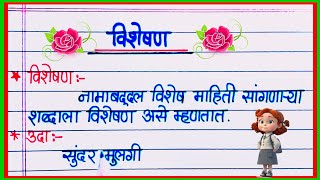 विशेषण
* विशेषण:-
नामाबद्दल विशेष माहिती सांगणाऱ्या
शब्दाला विशेषण असे म्हणतात.
* उदा:-
सुंदर मुलगी